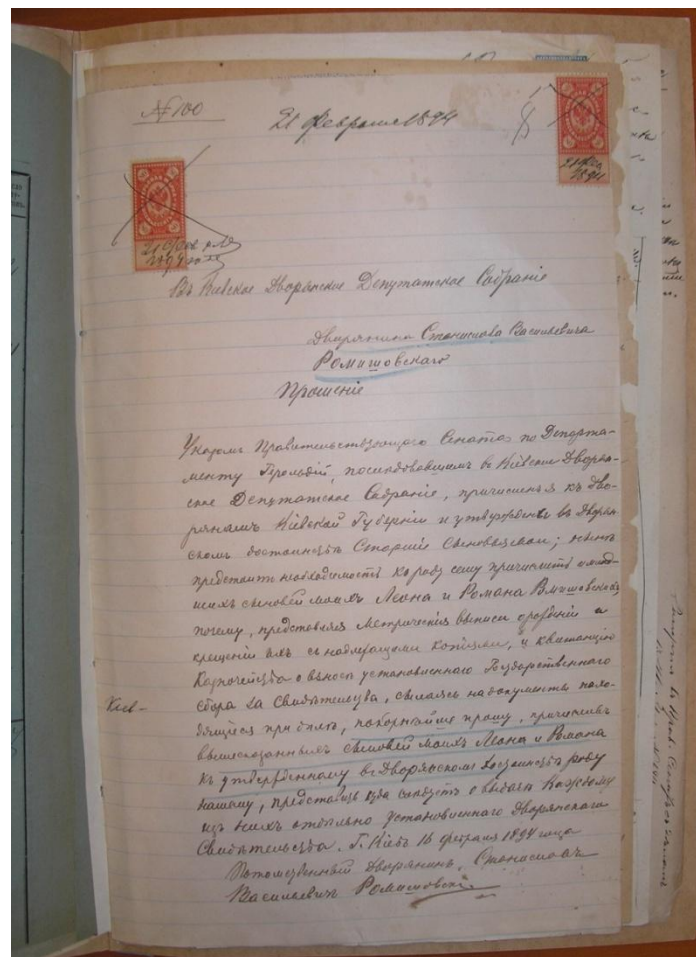 № 100
21 февраля 1894
21 Фев
1894
21 Фев
1894
Въ Кіевское Дворянское Депутатское Собраніе
Дворянина Станислава Васильевича
Ромишовскаго
Прошеніе
Указомъ Правительствующаго Сената по Департа-
менту Герольдіи, послѣдовавшимъ въ Кіевское Дворян-
ское Депутатское Собраніе, причислены къ Дво-
рянамъ Кіевской Губерніи и утверждены въ Дворян-
скомъ достоинствѣ Старшіе сыновья мои; нынѣ
предстоитъ необходимость къ роду сему причислить и млад-
шихъ сыновей моихъ Леона и Романа Ромишовскихъ,
почему, представляя метрическія выписи о рожденіи и
крещеніи ихъ съ надлежащими копіями, и квитанцію
Казначейства о взносѣ установленнаго Государственнаго
сбора за Свидѣтельства, ссылаясь на документы нахо-
Кіев-
дящіеся при дѣлѣ, покорнѣйше прошу, причисливъ
вышесказанныхъ сыновей моихъ Леона и Романа
къ утвержденному въ Дворянскомъ достоинствѣ роду
нашему, представить куда слѣдуетъ о выдачѣ каждому
изъ нихъ отдѣльно установленнаго Дворянскаго
Свидѣтельства. Г. Кіевъ 16 февраля 1894 года
Потомственный Дворянинъ, Станиславъ
Васильевичъ Ромишовскій.